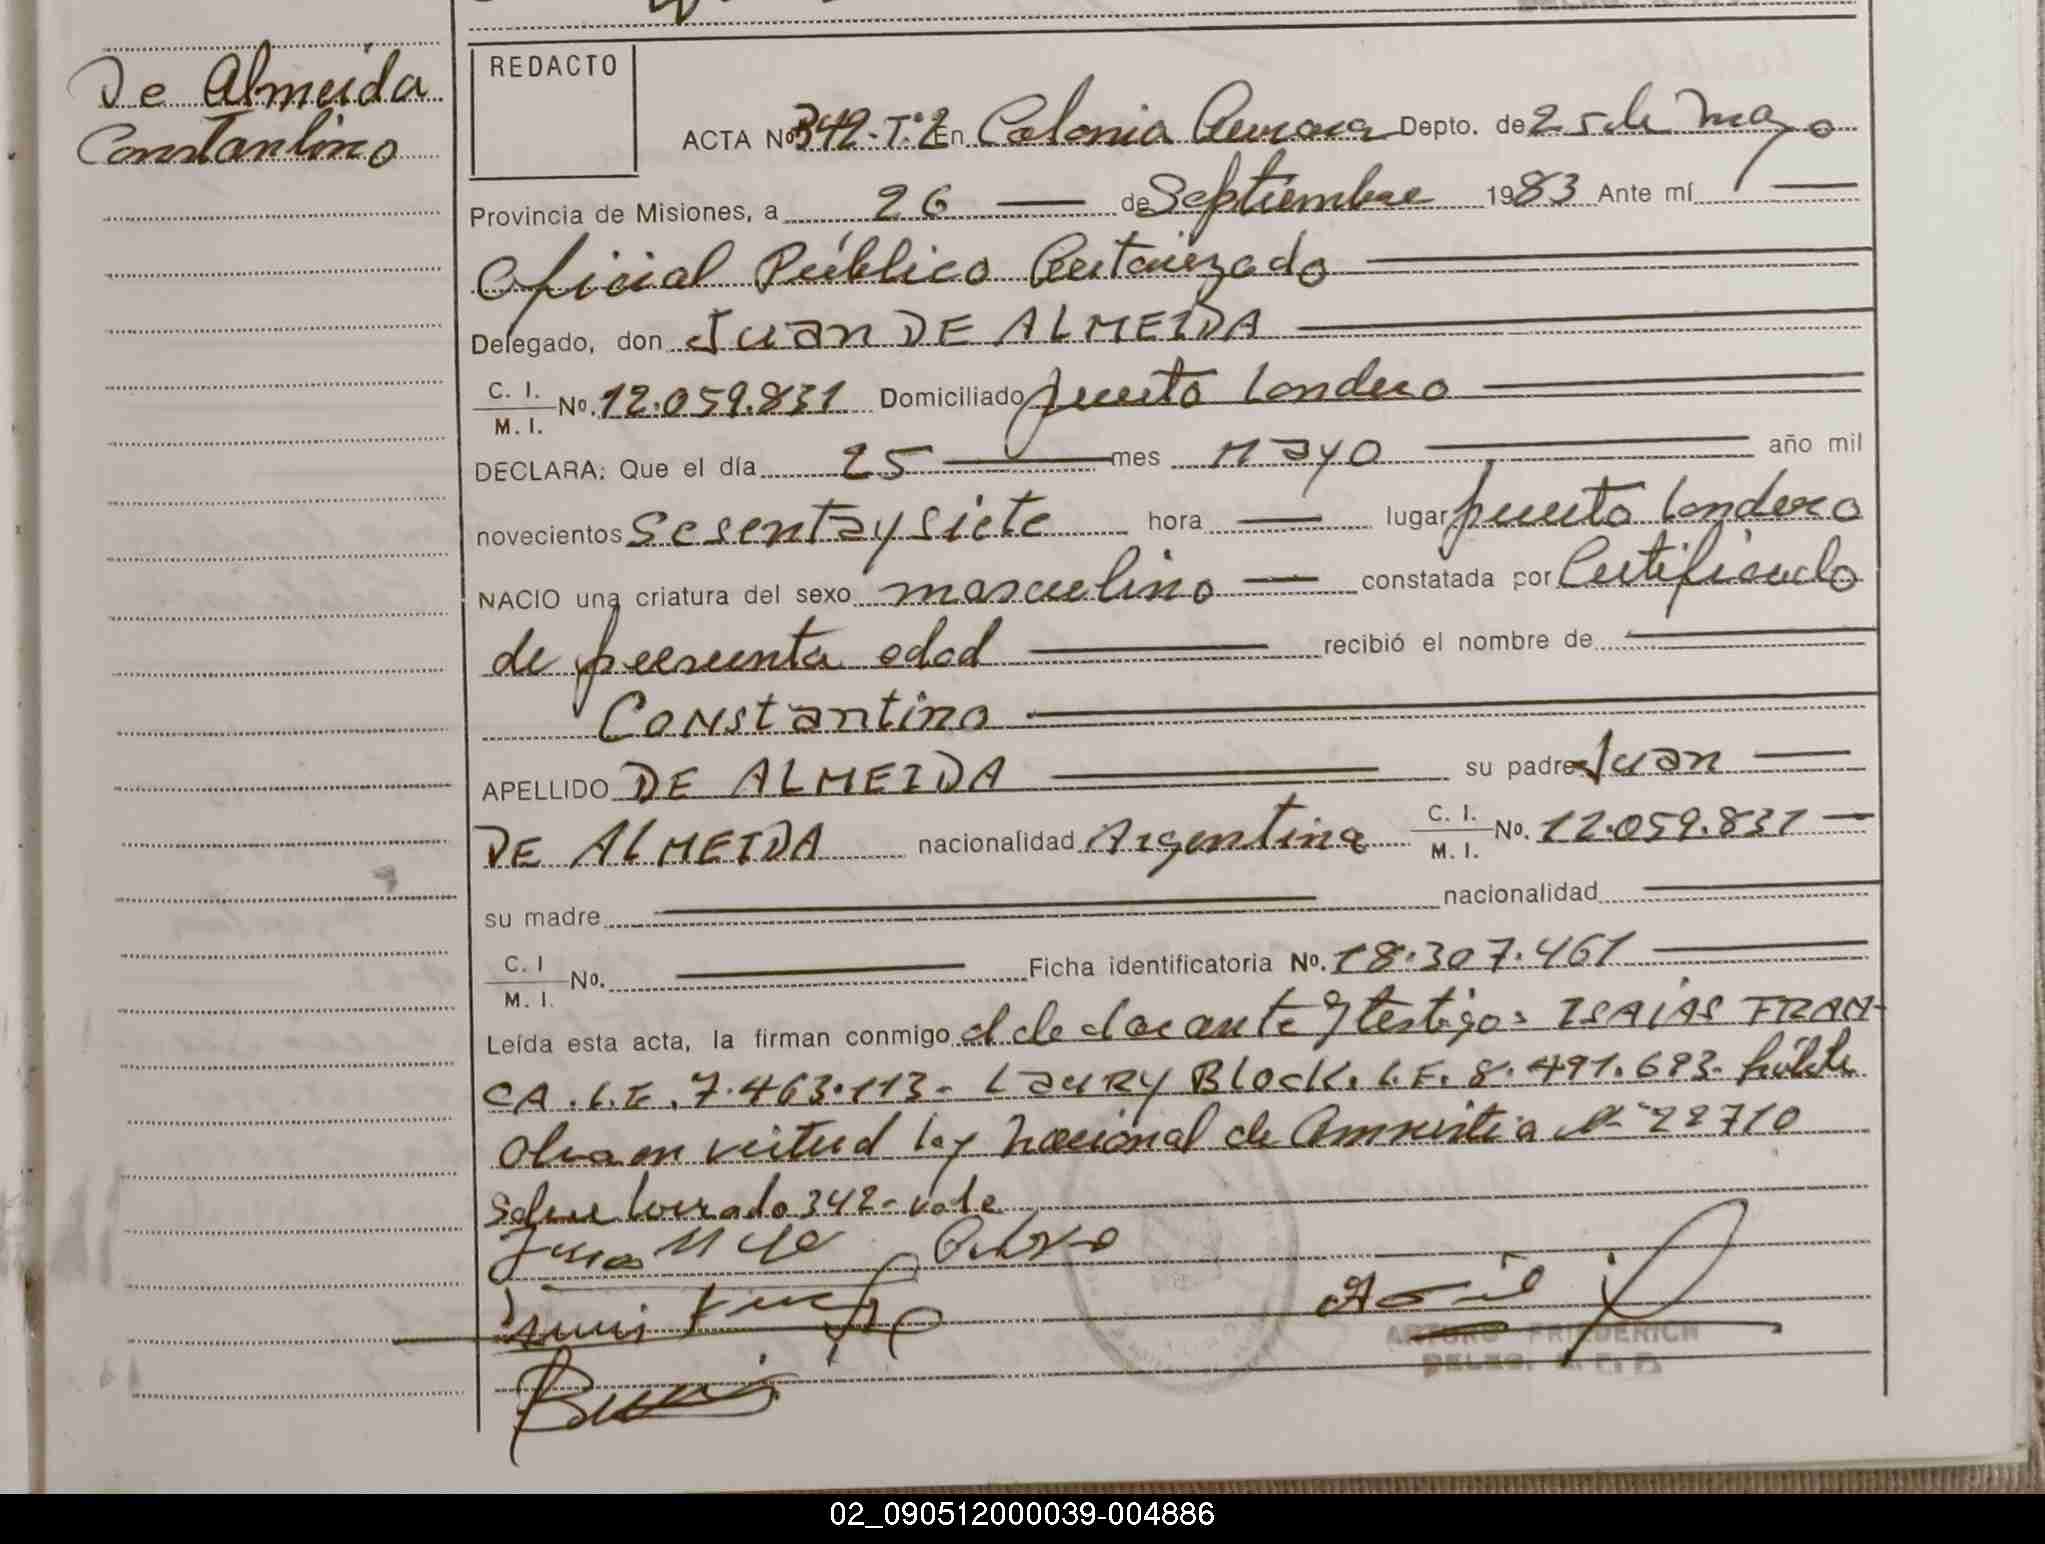 De Almeida
Constantino
REDACTO
ACTA Nº 342-T.º2 En Colonia Aurora Depto. de 25 de Mayo
Provincia de Misiones, a 26 de Septiembre 1983 Ante mí
Oficial Público Autorizado
Delegado, don Juan DE ALMEIDA
C. I.
M. I. Nº. 12.059.831 Domiciliado puerto Londero
DECLARA: Que el día 25 mes Mayo año mil
novecientos Sesenta y siete hora lugar puerto Londero
NACIO una criatura del sexo masculino constatada por Certificado
de presunta edad recibió el nombre de
Constantino
APELLIDO DE ALMEIDA su padre Juan
DE ALMEIDA nacionalidad Argentina C. I.
M. I. Nº. 12.059.831
su madre nacionalidad
C. I
M. I. Nº. Ficha identificatoria Nº. 18.307.461
Leída esta acta, la firman conmigo el declarante y testigos ISAIAS FRAN-
CA. L.E. 7.463.113. LAURY BLOCK. L.E. 8.491.693.
en virtud ley nacional de Amnistia Nº 22710
Sobre borrado 342-vale
ARTURO FRIEDERICH
02_090512000039-004886